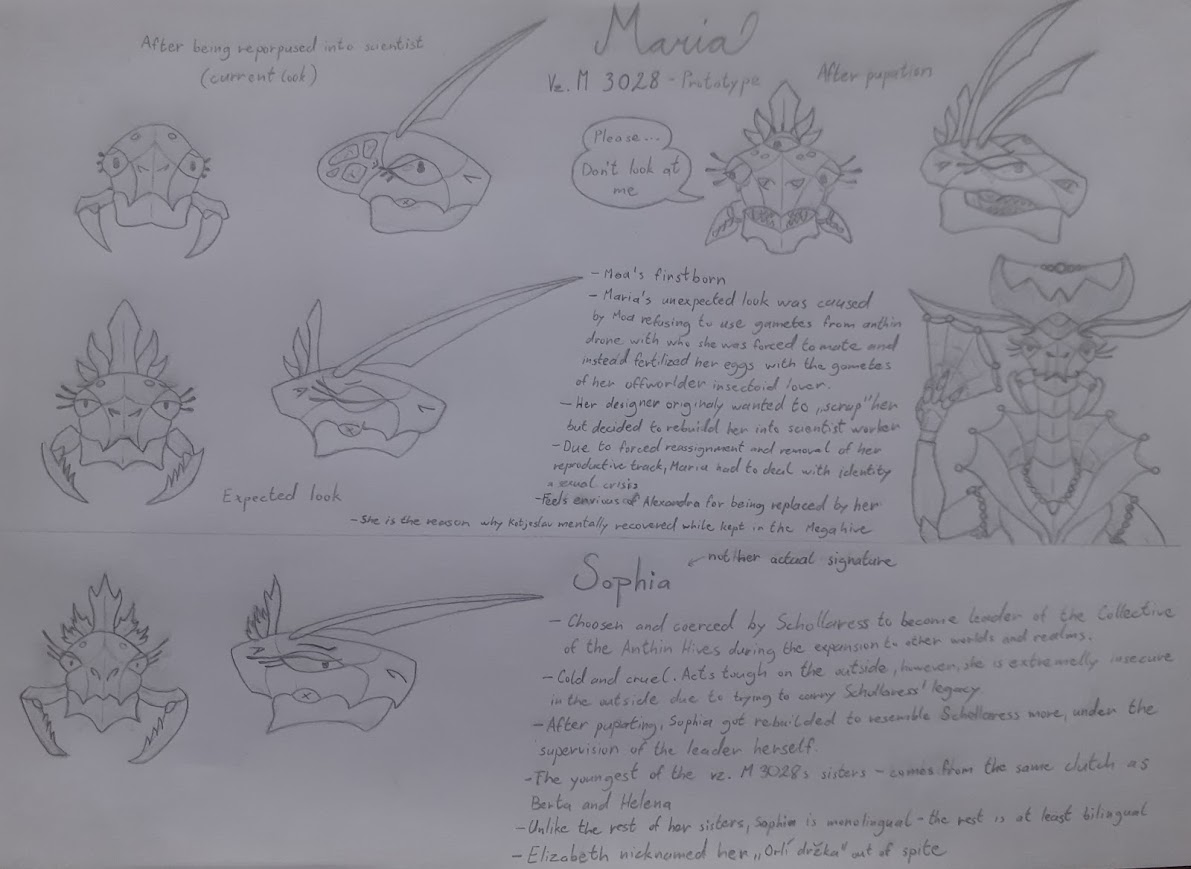 After being reporpused into scientist
(current look)
Maria
Vz. M 3028 - Prototype
After pupation
Please...
Don't look at
me
Expected look
- Moa's firstborn
- Maria's unexpected look was caused
by Moa refusing to use gametes from anthin
drone with who she was forced to mate and
instead fertilized her eggs with the gametes
of her offworlder insectoid lover.
- Her designer originaly wanted to „scrap" her
but decided to rebuild her into scientist worker
- Due to forced reassignment and removal of her
reproductive track, Maria had to deal with identity
a sexual crisis
- Feels envious of Alexandra for being replaced by her
- She is the reason why Kotjeslav mentally recovered while kept in the Megahive
Sophia
not her actual signature
- Choosen and coerced by Schollaress to become leader of the Collective
of the Anthin Hives during the expansion to other worlds and realms.
- Cold and cruel. Acts tough on the outside, however, she is extremelly insecure
in the outside due to trying to carry Schollaress' legacy
- After pupating, Sophia got rebuilded to resemble Schollaress more, under the
supervision of the leader herself.
- The youngest of the vz. M 3028s sisters - comes from the same clutch as
Berta and Helena
- Unlike the rest of her sisters, Sophia is monolingual - the rest is at least bilingual
- Elizabeth nicknamed her „Orlí držka" out of spite